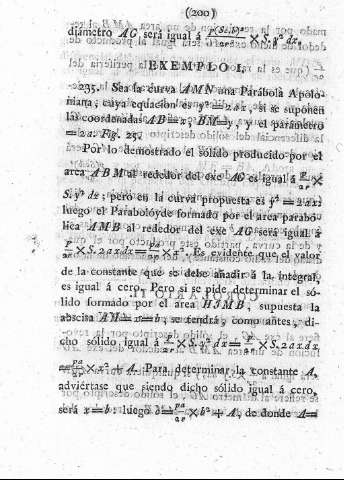 (200)
diámetro AG será igual á p(Sc,b)²/2r × S. y² dx.
EXEMPLO I.
235. Sea la curva AMN una Parábola Apolo-
niana, cuya equacion es y² = 2ax, si se suponen
las coordenadas AB = x, BM = y, y el parámetro
= 2a. Fig. 25.
Por lo demostrado el sólido producido por el
area ABM al rededor del exe AG es igual á p/2r ×
S. y² dx; pero en la curva propuesta es y² = 2ax:
luego el Paraboloyde formado por el area parabó-
lica AMB al rededor del exe AG será igual á
p/2r × S. 2axdx = pa/2r × x². Es evidente que el valor
de la constante que se debe añadir á la integral,
es igual á cero. Pero si se pide determinar el só-
lido formado por el area HIMB, supuesta la
abscisa AH = b, se tendrá, como antes, di-
cho sólido igual á p/2r × S. y² dx = p/2r × S. 2axdx
= pa/2r × x² + A. Para determinar la constante A,
adviértase que siendo dicho sólido igual á cero,
será x = b: luego 0 = pa/2r × b² + A, de donde A =